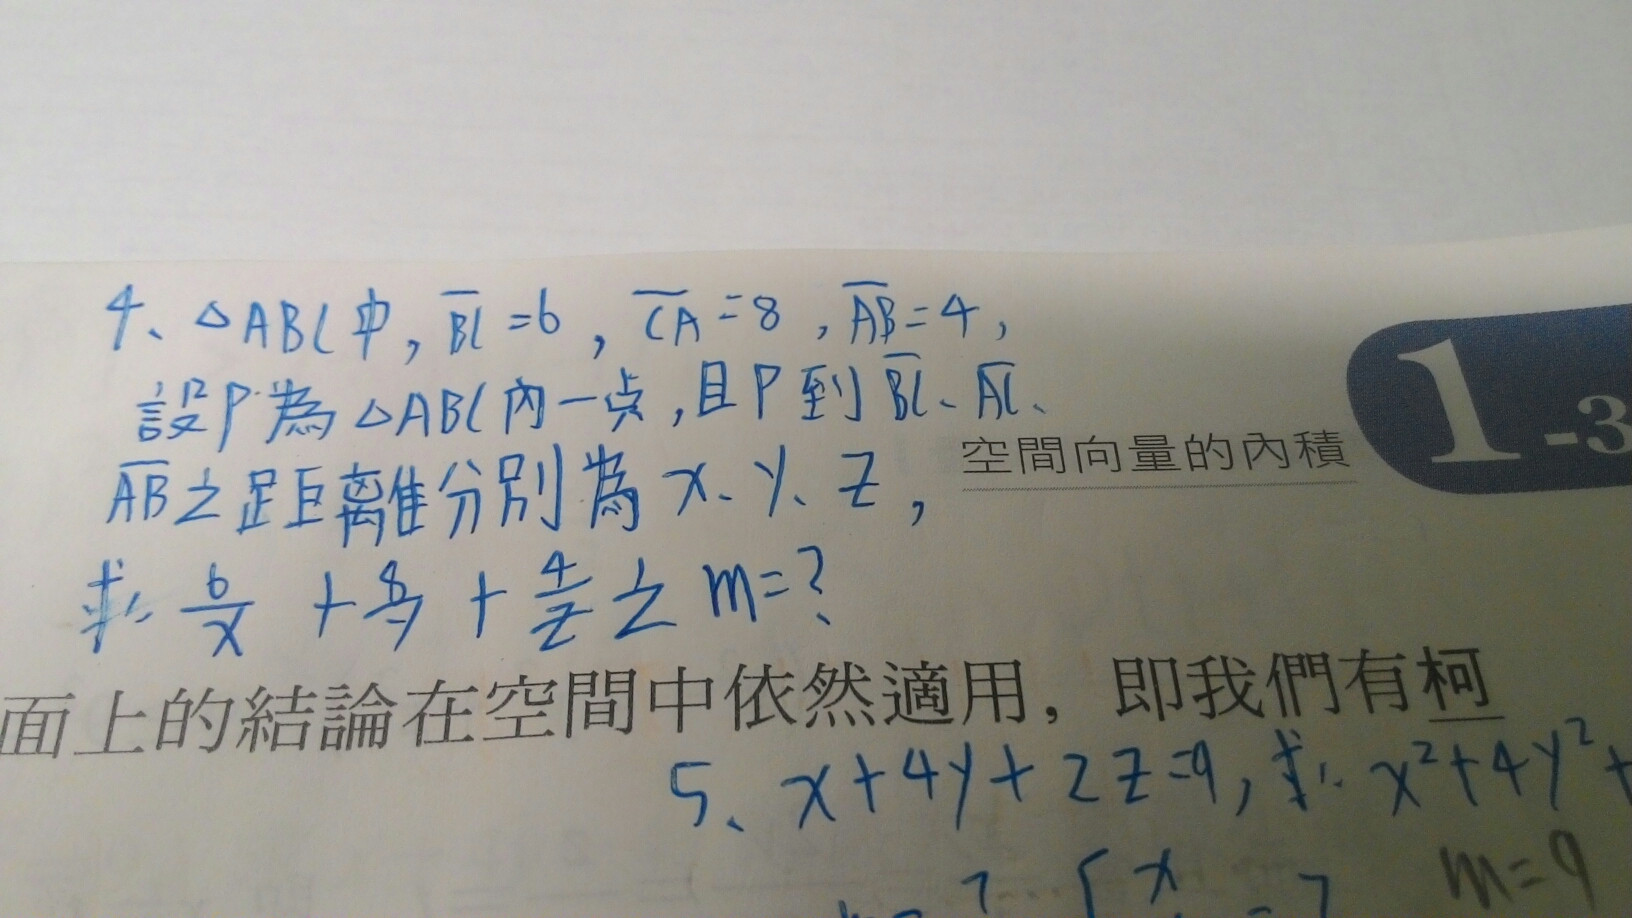 4、△ABC中, B̅C̅=6, C̅A̅=8, A̅B̅=4,
設P為△ABC內一点,且P到B̅C̅、A̅C̅、
A̅B̅之距離分別為x、y、z,
求 6/x + 8/y + 4/z 之m=?
空間向量的內積
1-3
面上的結論在空間中依然適用,即我們有柯
5、x+4y+2z=9,求 x²+4y²+
m=9